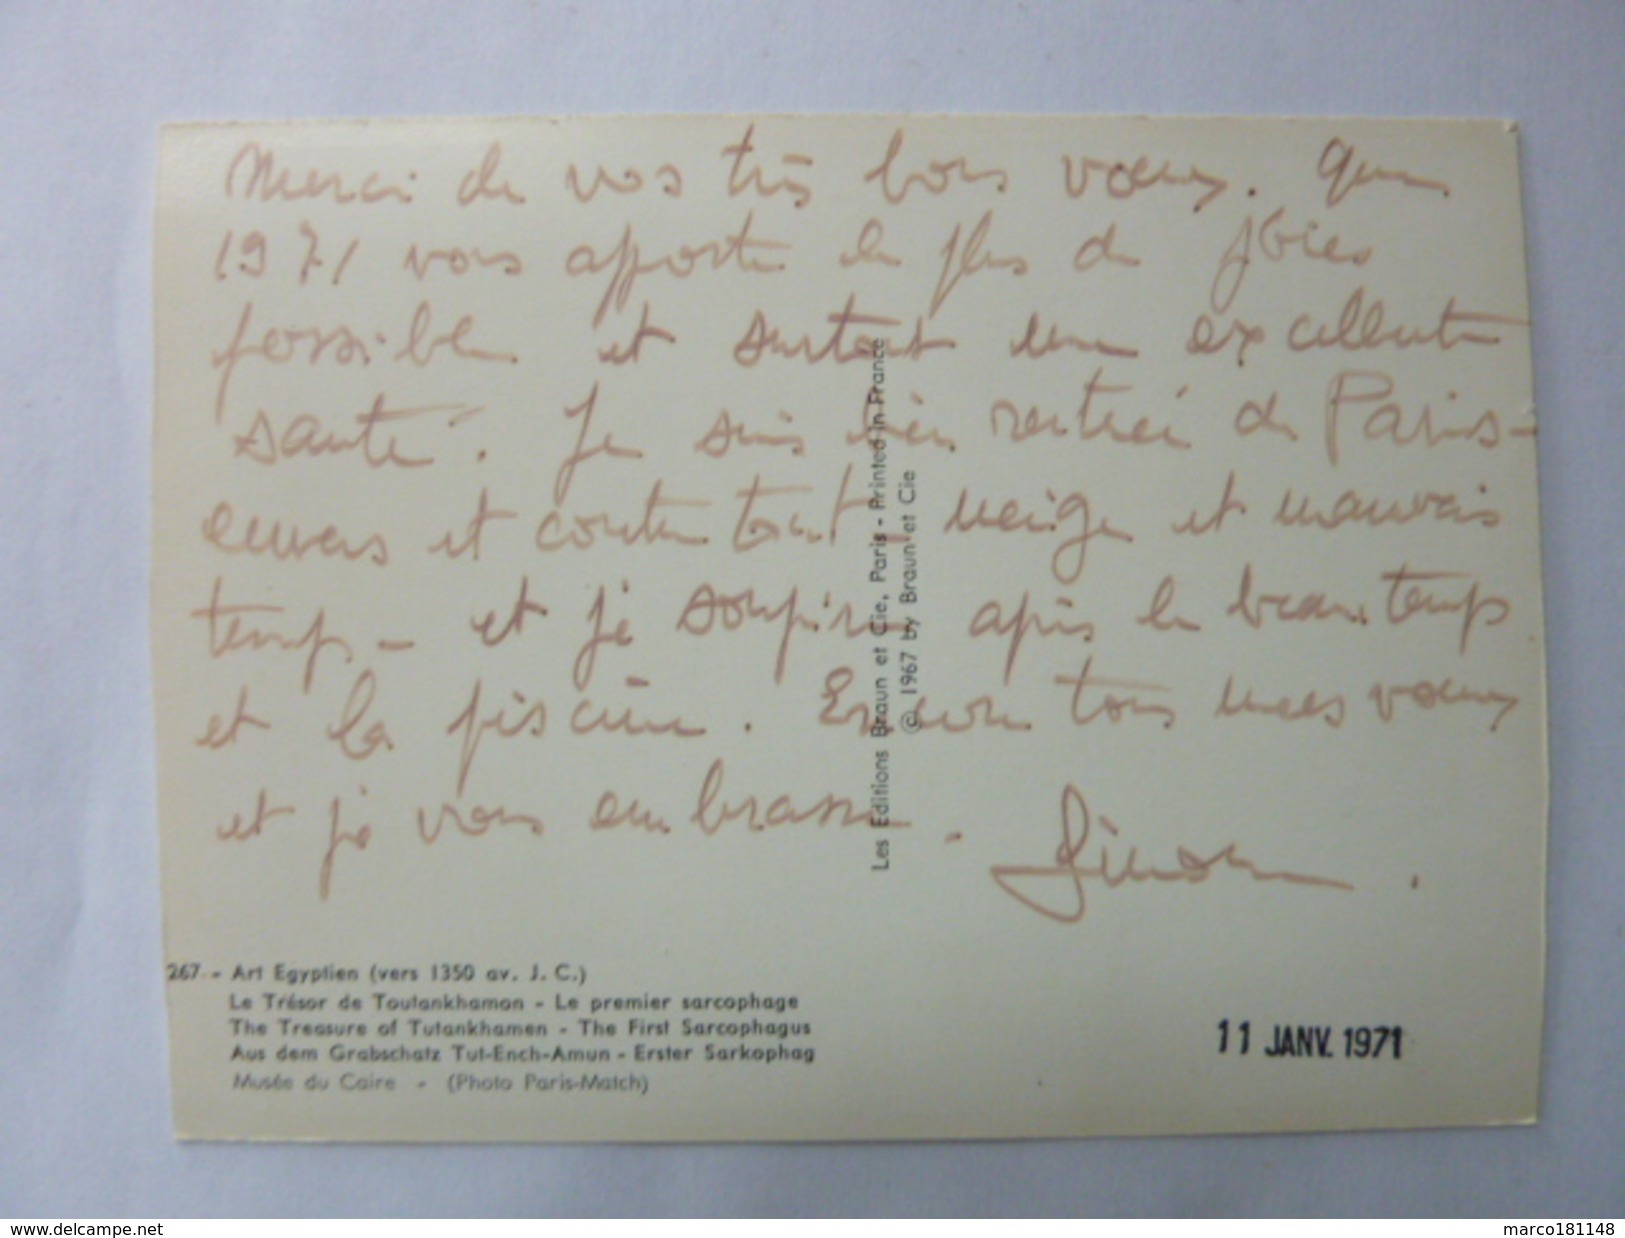 Merci de vos très bons vœux. Que
1971 vous apporte le plus de joies
possible et surtout une excellente
santé. Je suis bien rentrée de Paris -
envers et contre tout neige et mauvais
temps - et je soupire après le beau temps
et la piscine. Encore tous mes vœux
et je vous embrasse.
Simone.
Les Editions Braun et Cie, Paris - Printed in France
© 1967 by Braun et Cie
267 - Art Egyptien (vers 1350 av. J. C.)
Le Trésor de Toutankhamon - Le premier sarcophage
The Treasure of Tutankhamen - The First Sarcophagus
Aus dem Grabschatz Tut-Ench-Amun - Erster Sarkophag
Musée du Caire - (Photo Paris-Match)
11 JANV. 1971
www.delcampe.net
marco181148